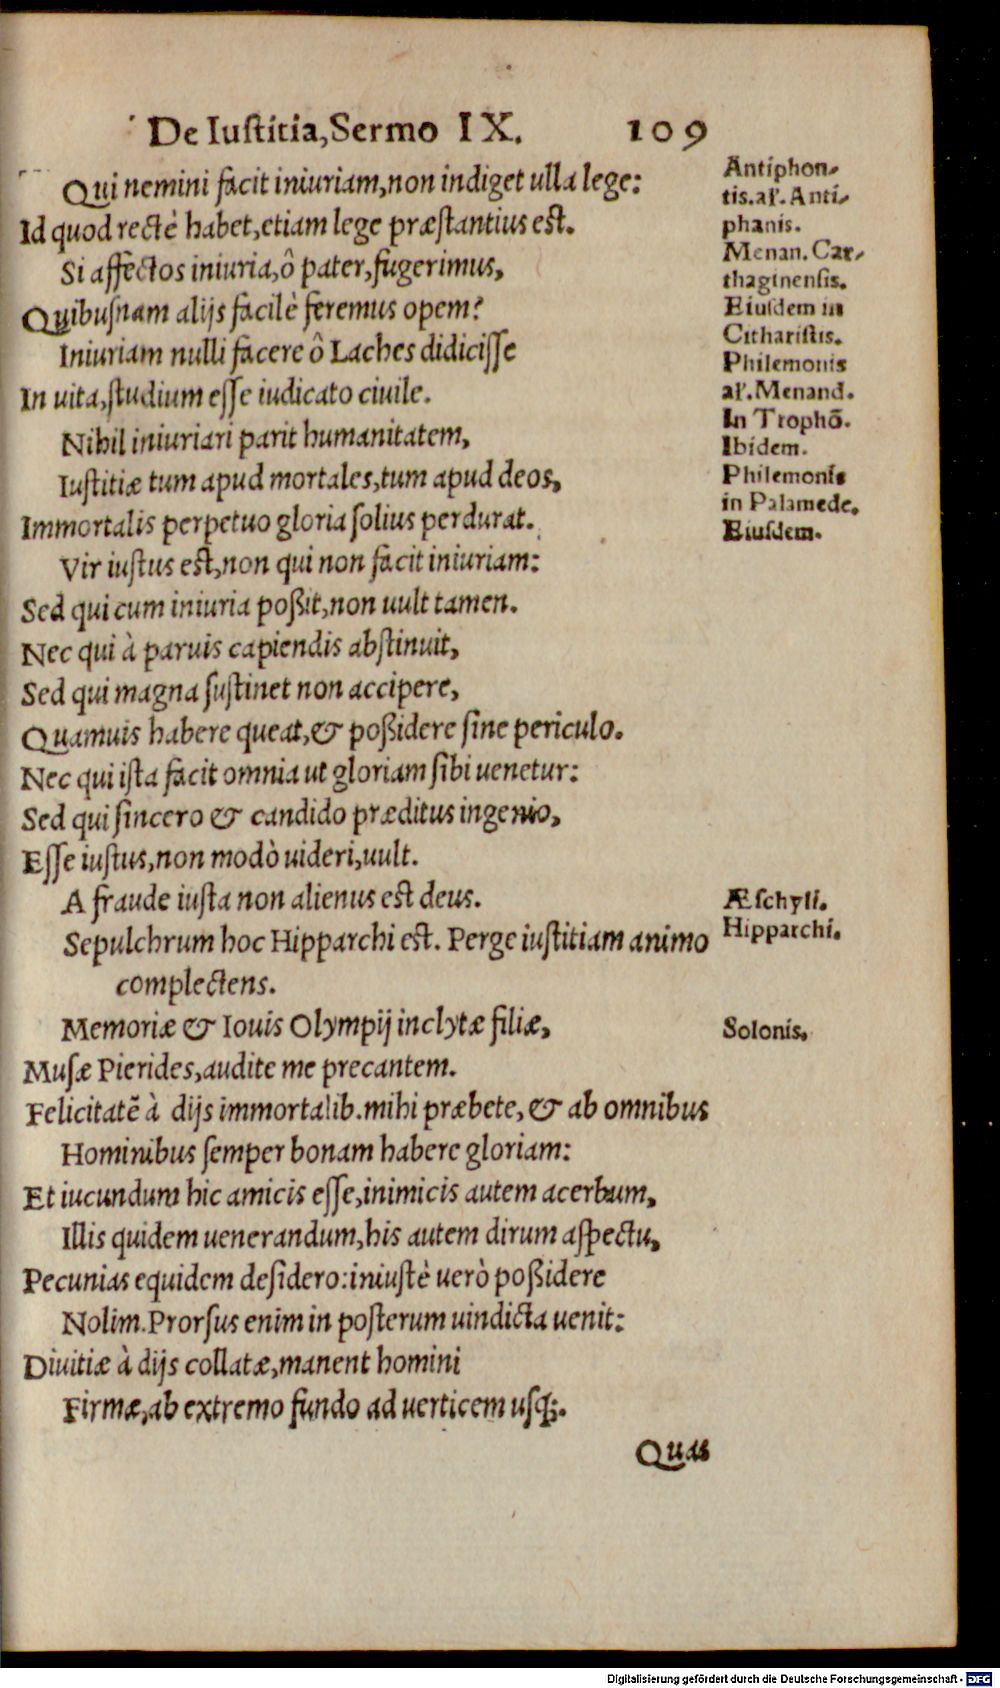 De Iuſtitia, Sermo IX. 109
Qui nemini facit iniuriam, non indiget ulla lege:
Id quod rectè habet, etiam lege præſtantius eſt.
Si affectos iniuria, ô pater, fugerimus,
Quibuſnam alijs facilè feremus opem?
Iniuriam nulli facere ô Laches didiciſſe
In uita, ſtudium eſſe iudicato ciuile.
Nihil iniuriari parit humanitatem,
Iuſtitiæ tum apud mortales, tum apud deos,
Immortalis perpetuo gloria ſolius perdurat.
Vir iuſtus eſt, non qui non facit iniuriam:
Sed qui cum iniuria poßit, non uult tamen.
Nec qui à paruis capiendis abſtinuit,
Sed qui magna ſuſtinet non accipere,
Quamuis habere queat, & poßidere ſine periculo.
Nec qui iſta facit omnia ut gloriam ſibi uenetur:
Sed qui ſincero & candido præditus ingenio,
Eſſe iuſtus, non modò uideri, uult.
A fraude iuſta non alienus eſt deus.
Sepulchrum hoc Hipparchi eſt. Perge iuſtitiam animo
complectens.
Memoriæ & Iouis Olympij inclytæ filiæ,
Muſæ Pierides, audite me precantem.
Felicitatē à dijs immortalib. mihi præbete, & ab omnibus
Hominibus ſemper bonam habere gloriam:
Et iucundum hic amicis eſſe, inimicis autem acerbum,
Illis quidem uenerandum, his autem dirum aſpectu,
Pecunias equidem deſidero: iniuſtè uerò poßidere
Nolim. Prorſus enim in poſterum uindicta uenit:
Diuitiæ à dijs collatæ, manent homini
Firmæ, ab extremo fundo ad uerticem uſq;.
Quas
Antiphon-
tis. al'. Anti-
phanis.
Menan. Car-
thaginenſis.
Eiuſdem in
Cithariſtis.
Philemonis
al'. Menand.
In Trophō.
Ibidem.
Philemonis
in Palamede.
Eiuſdem.
Æſchyli.
Hipparchi.
Solonis.
Digitalisierung gefördert durch die Deutsche Forschungsgemeinschaft - DFG